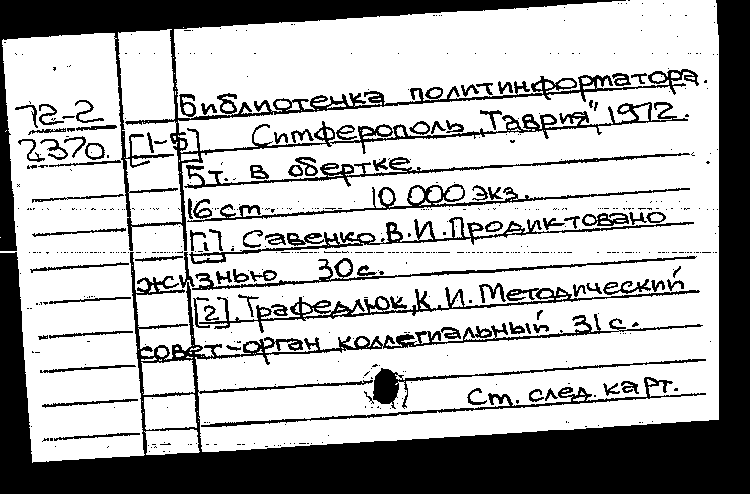 72-2
2370.
Библиотечка политинформатора.
[1-5] Симферополь, "Таврия", 1972.
5т. в обертке.
16 cm. 10 000 экз.
[1]. Савенко. В.И. Продиктовано
жизнью. 30с.
[2]. Трафедлюк, К.И. Методический
совет-орган коллегиальный. 31 с.
Ст. след. карт.